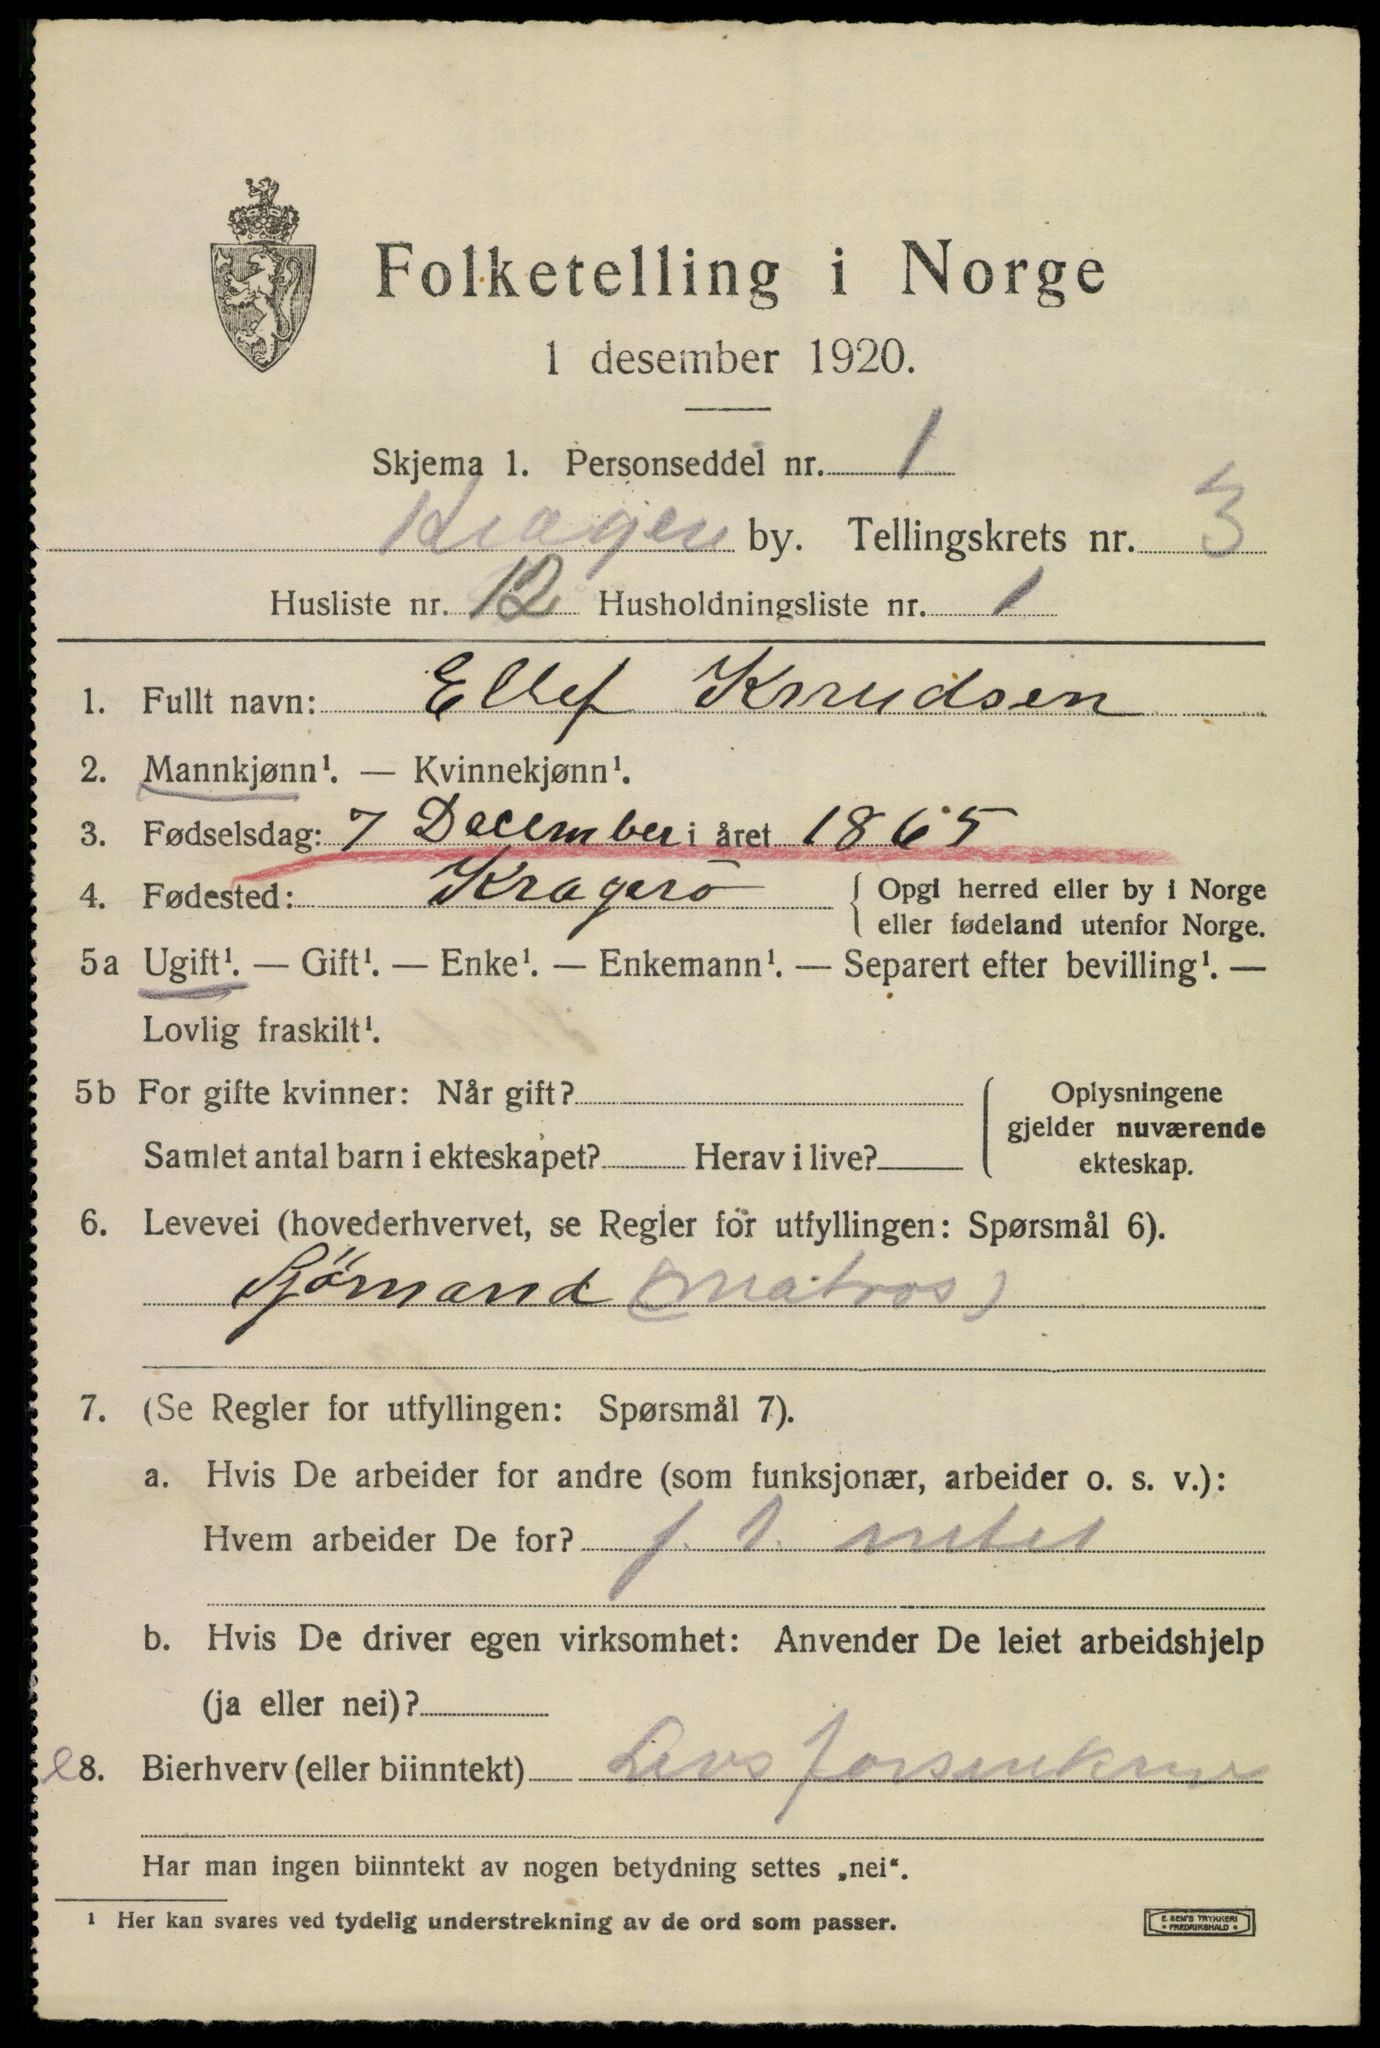 Folketelling i Norge
1 desember 1920.
Skjema 1. Personseddel nr. 1
Kragerø by. Tellingskrets nr. 3
Husliste nr. 12 Husholdningsliste nr. 1
1. Fullt navn: Ellef Knudsen
2. Mannkjønn¹. — Kvinnekjønn¹.
3. Fødselsdag: 7 December i året 1865
4. Fødested: Kragerö { Opgi herred eller by i Norge
eller fødeland utenfor Norge.
5a Ugift¹. — Gift¹. — Enke¹. — Enkemann¹. — Separert efter bevilling¹. —
Lovlig fraskilt¹.
5b For gifte kvinner: Når gift?
Samlet antal barn i ekteskapet? Herav i live?
Oplysningene
gjelder nuværende
ekteskap.
6. Levevei (hovederhvervet, se Regler for utfyllingen: Spørsmål 6).
Sjömand (Matros)
7. (Se Regler for utfyllingen: Spørsmål 7).
a. Hvis De arbeider for andre (som funksjonær, arbeider o. s. v.):
Hvem arbeider De for?
b. Hvis De driver egen virksomhet: Anvender De leiet arbeidshjelp
(ja eller nei)?
8. Bierhverv (eller biinntekt)
Har man ingen biinntekt av nogen betydning settes „nei“.
¹ Her kan svares ved tydelig understrekning av de ord som passer.
E. SEM'S TRYKKERI
• FREDRIKSHALD •